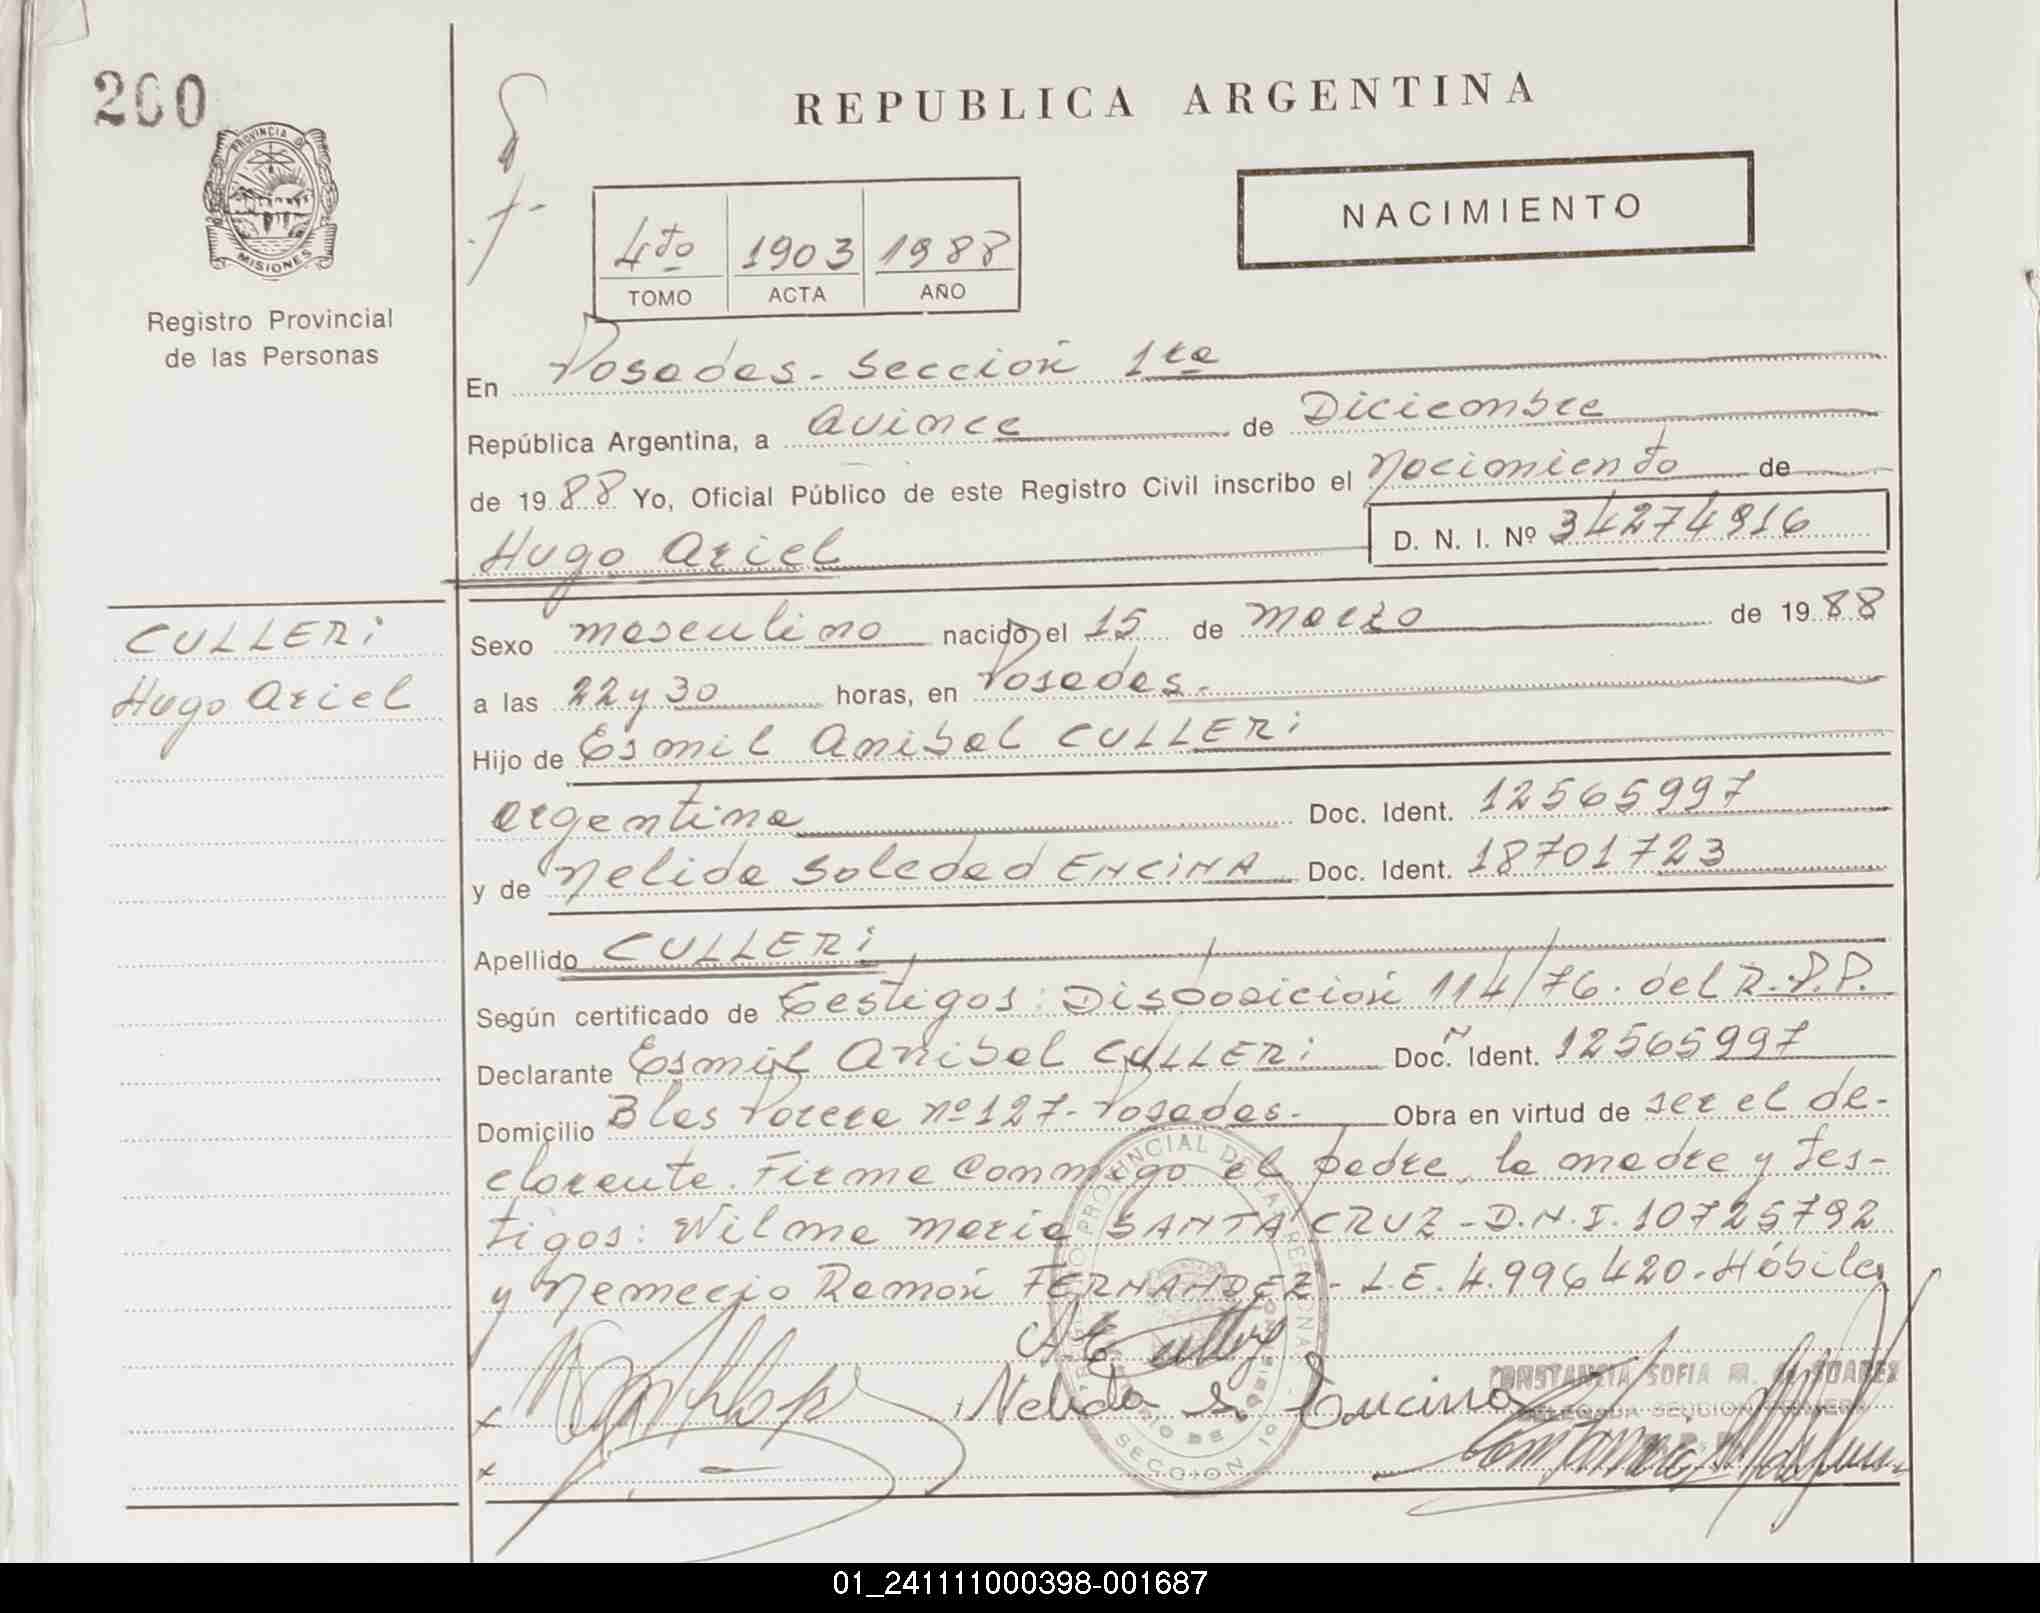 200
REPUBLICA ARGENTINA
PROVINCIA D
MISIONES
Registro Provincial
de las Personas
4to 1903 1988
TOMO ACTA AÑO
NACIMIENTO
En Posadas - Sección 1ra
República Argentina, a Quince de Diciembre
de 1988 Yo, Oficial Público de este Registro Civil inscribo el Nacimiento de
Hugo Ariel D. N. I. Nº 34274916
CULLERi
Hugo Ariel
Sexo masculino nacido el 15 de Marzo de 1988
a las 22 y 30 horas, en Posadas.
Hijo de Esmil Anibal CULLERi
argentina Doc. Ident. 12565997
y de Nelida Soledad ENCINA Doc. Ident. 18701723
Apellido CULLERi
Según certificado de testigos: Disposición 114/76. del R.P.P.
Declarante Esmil Anibal CULLERi Doc. Ident. 12565997
Domicilio Blas Parera nº 127 - Posadas. Obra en virtud de ser el de-
clarante. Firma conmigo el padre, la madre y tes-
tigos: Wilma Maria SANTA CRUZ - D.N.I. 10725792
y Nemecio Ramón FERNANDEZ - L.E. 4.996420. Hábiles
Nelida S. Encina
CONSTANCIA SOFIA M. de SOAREZ
DELEGADA SECCION PRIMERA
SECCION 1º
01_241111000398-001687